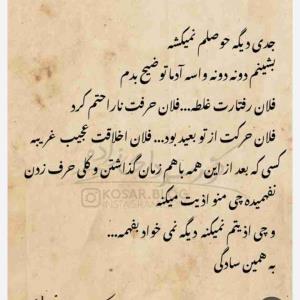 جدی دیگه حوصلم نمیکشه
بشینم دونه دونه واسه آدما توضیح بدم
فلان رفتارت غلطه...فلان حرفت ناراحتم کرد
فلان حرکت از تو بعید بود... فلان اخلاقت عجیب غریبه
کسی که بعد از این همه باهم زمان گذاشتن و کلی حرف زدن
نفهمیده چی منو اذیت میکنه
KOSAR.BLOG
و چی اذیتم نمیکنه دیگه نمی خواد بفهمه...
به همین سادگی